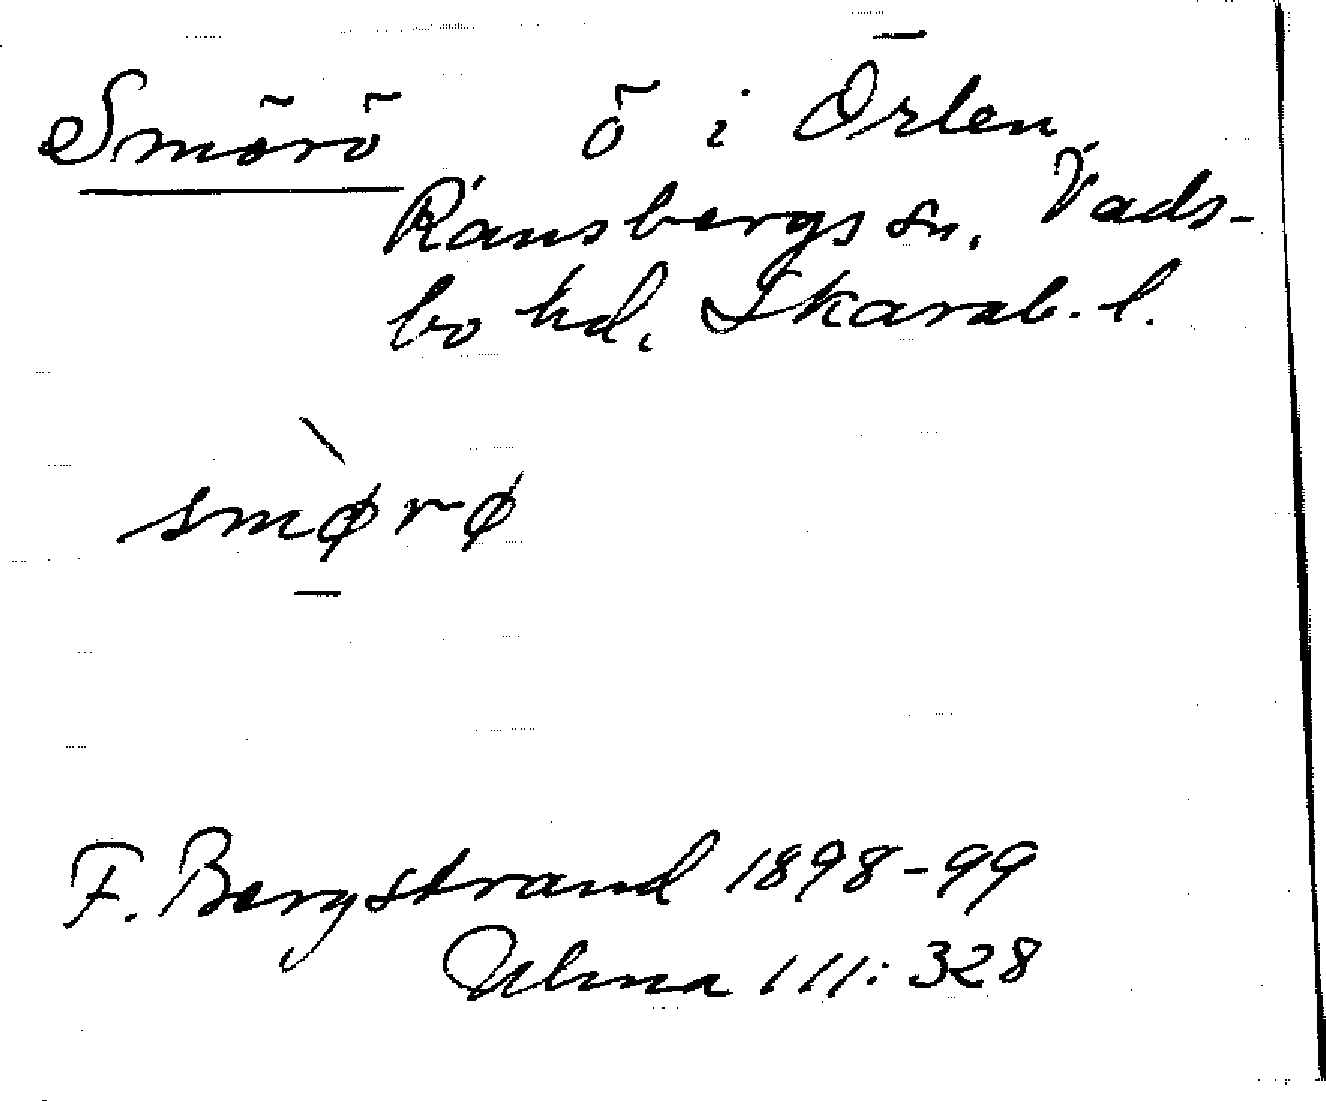 Smörö ö i Örlen,
Ransbergs sn, Vads-
bo hd, Skarab. l.
smørø
F. Bergstrand 1898-99
Ulma 111: 328